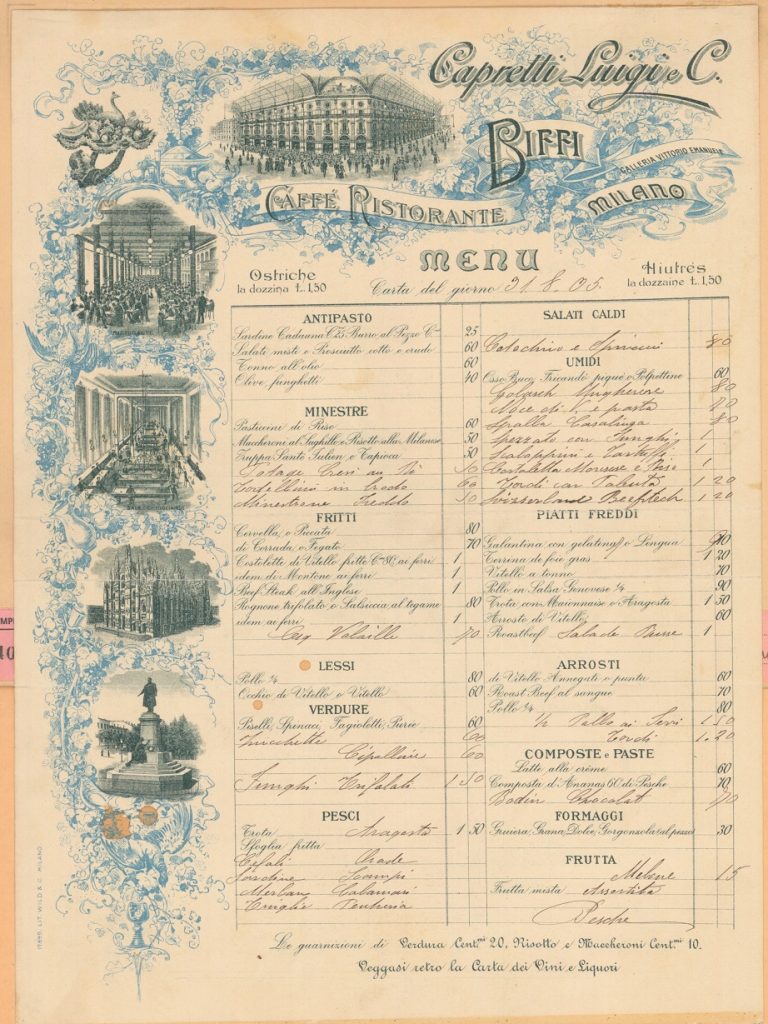 Capretti Luigi e C.
BIFFI
GALLERIA VITTORIO EMANUELE
MILANO
CAFFÉ RISTORANTE
MENU
Ostriche
la dozzina £. 1,50
Carta del giorno 31. 8. 05.
Hiutrés
la dozzaine £. 1,50
ANTIPASTO
Sardine Cadauna C. 25 Burro al Pezzo C. 25
Salati misti e Prosciutto cotto e crudo 60
Tonno all'olio 60
Olive, funghetti 40
MINESTRE
Pasticcini di Riso 60
Maccherone al Sughillo e Risotto alla Milanese 50
Zuppa Santé Julien e Tapioca 50
Potage
Tortellini in brodo 60
Minestrone freddo 50
FRITTI
Cervella, o Piccata 80
di Corrada, o Fegato 70
Costolette di Vitello fritte C. 80, ai ferri 1
idem di Montone ai ferri 1
Beef Steak all'Inglese 1
Rognone trifolato, o Salsiccia, al tegame 80
idem ai ferri 1
Volaille 70
LESSI
Pollo ¼ 80
Occhio di Vitello o Vitello 60
VERDURE
Piselli, Spinaci, Fagioletti, Purée 60
Zucchette 60
60
Funghi Trifolati 1 50
PESCI
Trota Aragosta 1 50
Sfoglia fritta
Cefali Orade
Sardine Scampi
Merlan Calamari
Triglie
SALATI CALDI
Cotechino e 80
UMIDI
Osso Buco, Fricandò piqué o Polpettine 60
Golasch Ungherese 80
Noce di V. e pasta 70
Spalla Casalinga 80
Spezzato con Funghi 1
Scaloppini e Tartuffi 1
Costoletta e Riso 1
Tordi con Polenta 1 20
Beefsteck 1 20
PIATTI FREDDI
Galantina con gelatina, o Lingua
Terrina de foie gras 1 20
Vitello a tonno 70
Pollo in Salsa Genovese ¼ 90
Trota con Maionnaise o Aragosta 1 50
Arrosto di Vitello 60
Roastbeef Salade Russe 1
ARROSTI
di Vitello Annegato o punta 60
Roast Beef al sangue 70
Pollo ¼ 80
½ Pollo ai 1.50
Tordi 1.20
COMPOSTE e PASTE
Latte alla crême 60
Composta d'Ananas 60 di Pesche 70
Bodin Chocolat 70
FORMAGGI
Gruiera, Grana, Dolce, Gorgonzola (al pezzo) 30
FRUTTA
Melone 15
Frutta mista Assortita
Pesche
Le guarnizioni di Verdura Cent.mi 20, Risotto e Maccheroni Cent.mi 10.
Veggasi retro la Carta dei Vini e Liquori
LIT. WILD & C. MILANO